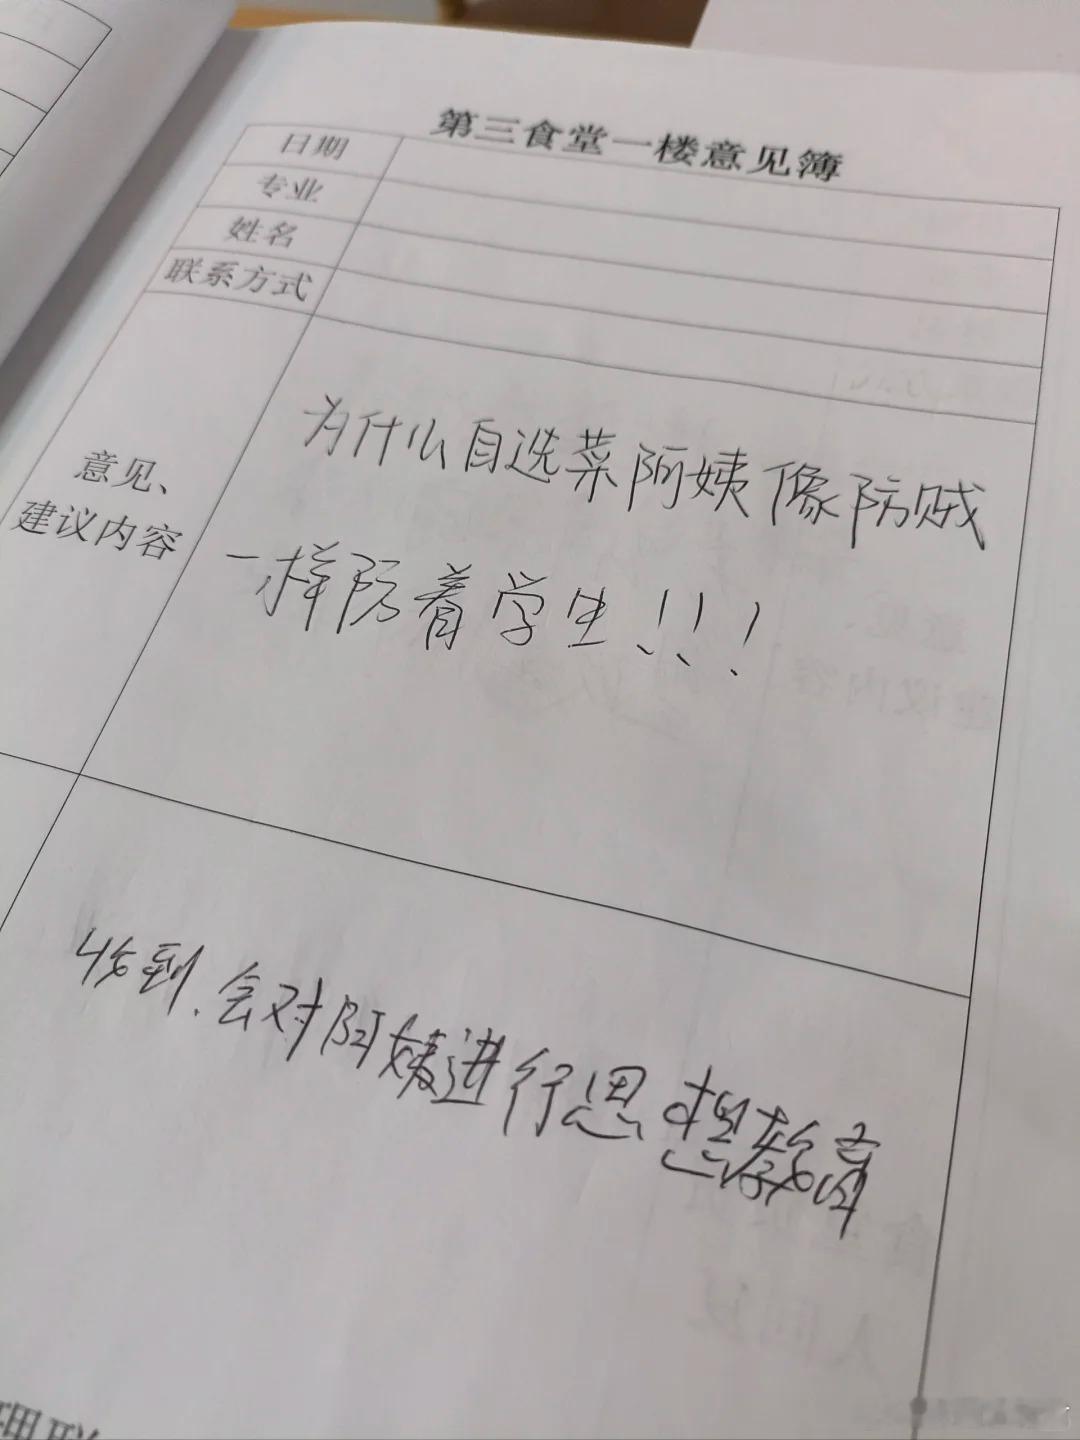 第三食堂一楼意见簿
日期
专业
姓名
联系方式
意见、
建议内容
为什么自选菜阿姨像防贼
一样防着学生!!!
收到.会对阿姨进行思想教育